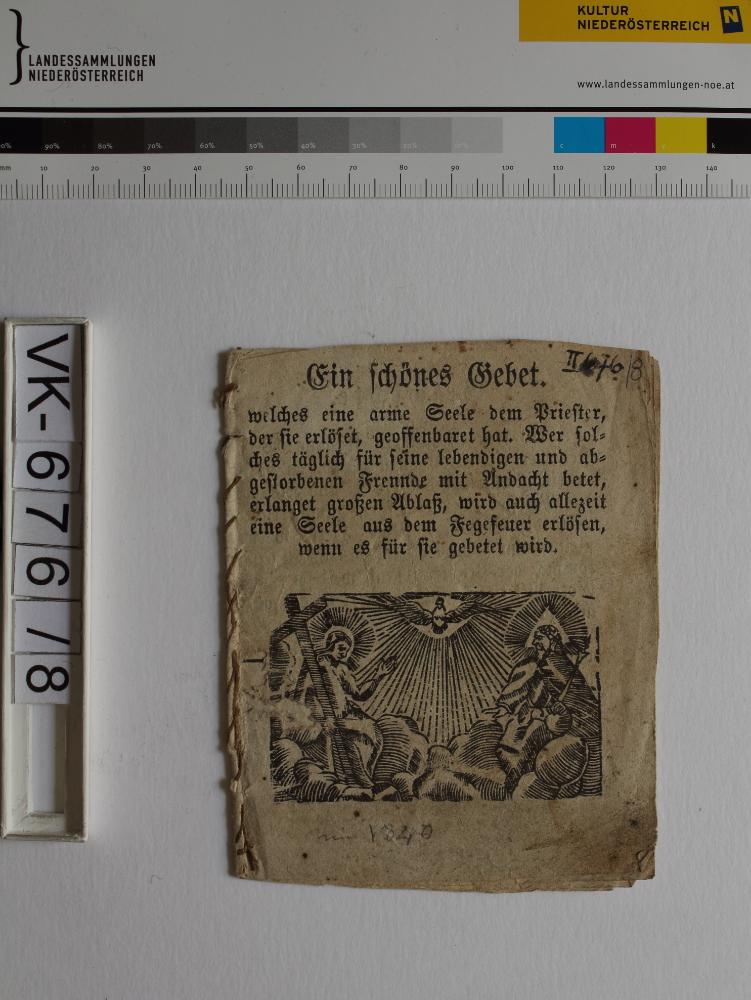 LANDESSAMMLUNGEN
NIEDERÖSTERREICH
KULTUR
NIEDERÖSTERREICH
N
www.landessammlungen-noe.at
90% 80% 70% 60% 50% 40% 30% 20% 10% c m y k
mm 10 20 30 40 50 60 70 80 90 100 110 120 130 140
VK-676/8
II 676/8
Ein schönes Gebet.
welches eine arme Seele dem Priester,
der sie erlöset, geoffenbaret hat. Wer sol-
ches täglich für seine lebendigen und ab-
gestorbenen Frennde mit Andacht betet,
erlanget großen Ablaß, wird auch allezeit
eine Seele aus dem Fegefeuer erlösen,
wenn es für sie gebetet wird.
1840
8